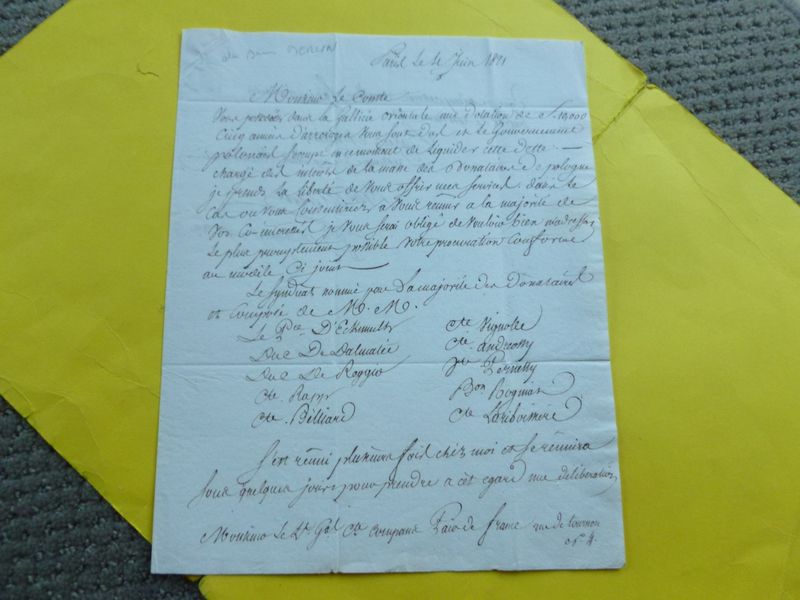 Paris le Juin 1821
Monsieur Le Comte
Vous possédez dans la Gallicie orientale une Dotation de f. 10,000
Cinq années d'arrérages vous sont dus et Le Gouvernement
polonais s'occupe en ce moment de liquider cette dette.
chargé des intérêts de la masse des Donataires de pologne
je prends la liberté de vous offrir mes services dans le
Cas où vous consentiriez à vous réunir a la majorité de
vos Co-intéressés je vous serai obligé de vouloir bien m'adresser
Le plus promptement possible votre procuration Conforme
au modèle Ci joint
Le Syndicat nommé par La majorité des Donataires
est Composé de M. M.
Le Pce D'Eckmulh Cte Vignolle
Duc De Dalmatie Cte andreossy
Duc De Reggio Vte Pernetty
Cte Rapp Bon Rogniat
Cte Belliard Cte Lariboisiere
s'est réuni plusieurs fois chez moi et se réunira
sous quelques jours pour prendre a cet egard une déliberation,
Monsieur Le Lt Gal Cte Compans Pair de france rue de tournon